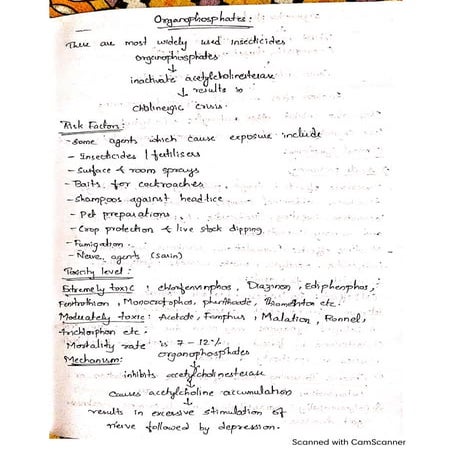 Organophosphates:
These are most widely used insecticides
organophosphates
↓
inactivate acetylcholinesterase
↓ results in
cholinergic crisis.
Risk Factors:
- Some agents which cause exposure include
- Insecticides / fertilisers
- Surface & room sprays
- Baits for cockroaches
- Shampoos against headlice
- Pet preparations
- Crop protection & live stock dipping
- Fumigation
- Nerve agents (sarin)
Toxicity level:
Extremely toxic: chlorfenvinphos, Diazinon, Ediphenphos,
Monocrotophos, etc.
Moderately toxic: Acetate, Famphur, Malation, Ronnel,
trichlorphon etc.
Mortality rate is 7-12%
Mechanism: organophosphates
↓
inhibits acetylcholinesterase
↓
causes acetylcholine accumulation
↓
results in excessive stimulation of
nerve followed by depression.
Scanned with CamScanner